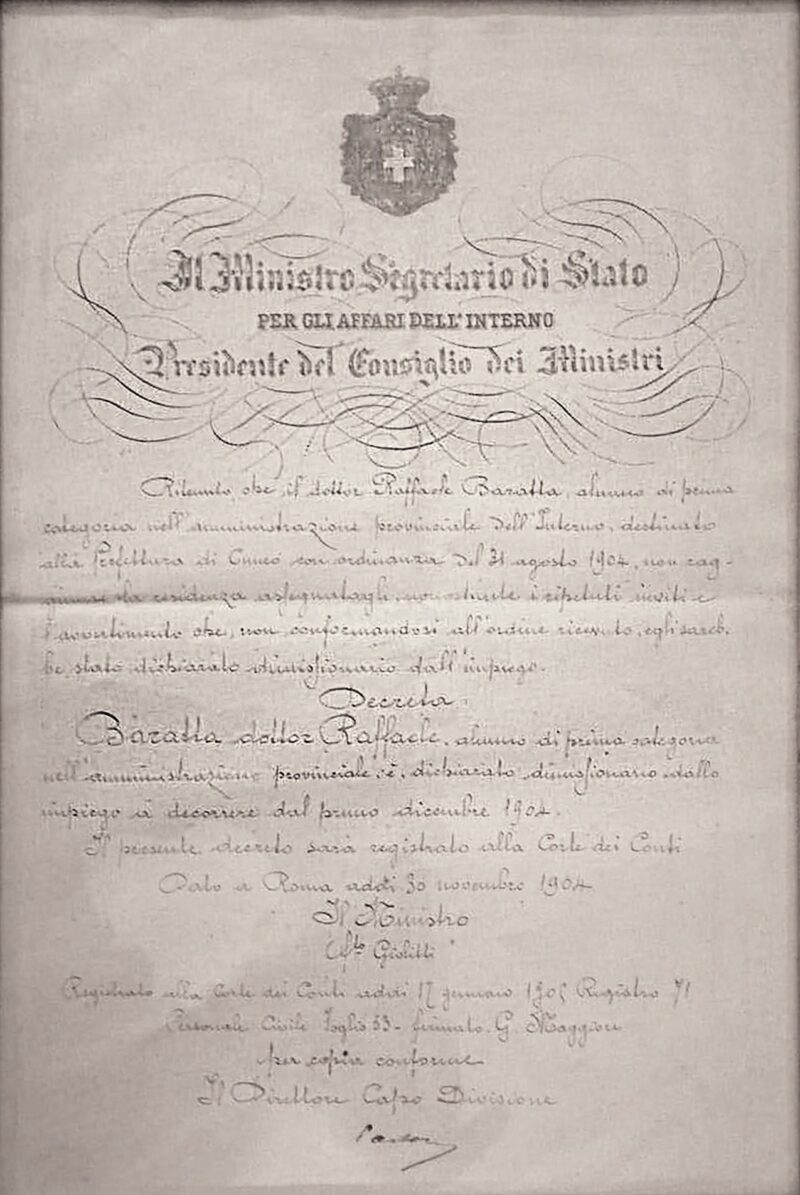 Il Ministro Segretario di Stato
PER GLI AFFARI DELL'INTERNO
Presidente del Consiglio dei Ministri
Ritenuto che il dottor Raffaele Baratta, alunno di prima
categoria nell'amministrazione provinciale dell'Interno, destinato
alla Prefettura di Cuneo con ordinanza del 31 agosto 1904, non rag-
giunse la residenza assegnatagli, nonostante i ripetuti inviti e
l'avvertimento che, non conformandosi all'ordine ricevuto, egli sareb-
be stato dichiarato dimissionario dall'impiego.
Decreta:
Baratta dottor Raffaele, alunno di prima categoria
nell'amministrazione provinciale è dichiarato dimissionario dallo
impiego a decorrere dal primo dicembre 1904.
Il presente decreto sarà registrato alla Corte dei Conti
Dato a Roma addì 30 novembre 1904
Il Ministro
Giolitti
Registrato alla Corte dei Conti addì 17 gennaio 1905 Registro 71
Personale Civile foglio 53 - firmato G. Maggiori
per copia conforme
Il Direttore Capo Divisione